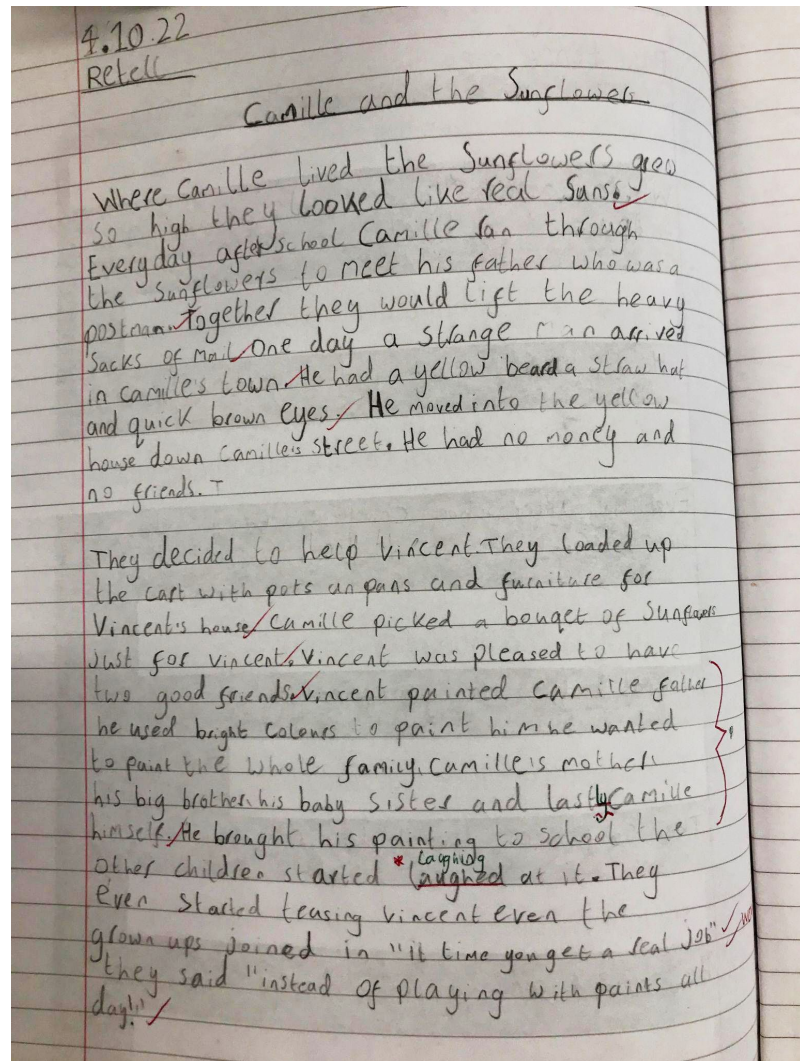 4.10.22
Retell
Camille and the Sunflowers
Where Camille lived the Sunflowers grew
so high they looked like real Suns.
Everyday after school Camille ran through
the Sunflowers to meet his father who was a
postman. Together they would lift the heavy
Sacks of mail. One day a strange man arrived
in camille's town. He had a yellow beard a straw hat
and quick brown eyes. He moved into the yellow
house down Camille's street. He had no money and
no friends. T
They decided to help Vincent. They loaded up
the cart with pots an pans and furniture for
Vincent's house. Camille picked a bouqet of Sunflowers
Just for Vincent. Vincent was pleased to have
two good friends. Vincent painted Camille father
he used bright colours to paint him he wanted
to paint the whole family. Camille's mother.
his big brother. his baby Sister and lastly Camille
himself. He brought his painting to school the
laughing
other children started * laughed at it. They
Even Started teasing Vincent even the
grown ups joined in "it time you get a real job"
they said "instead of playing with paints all
day!!"